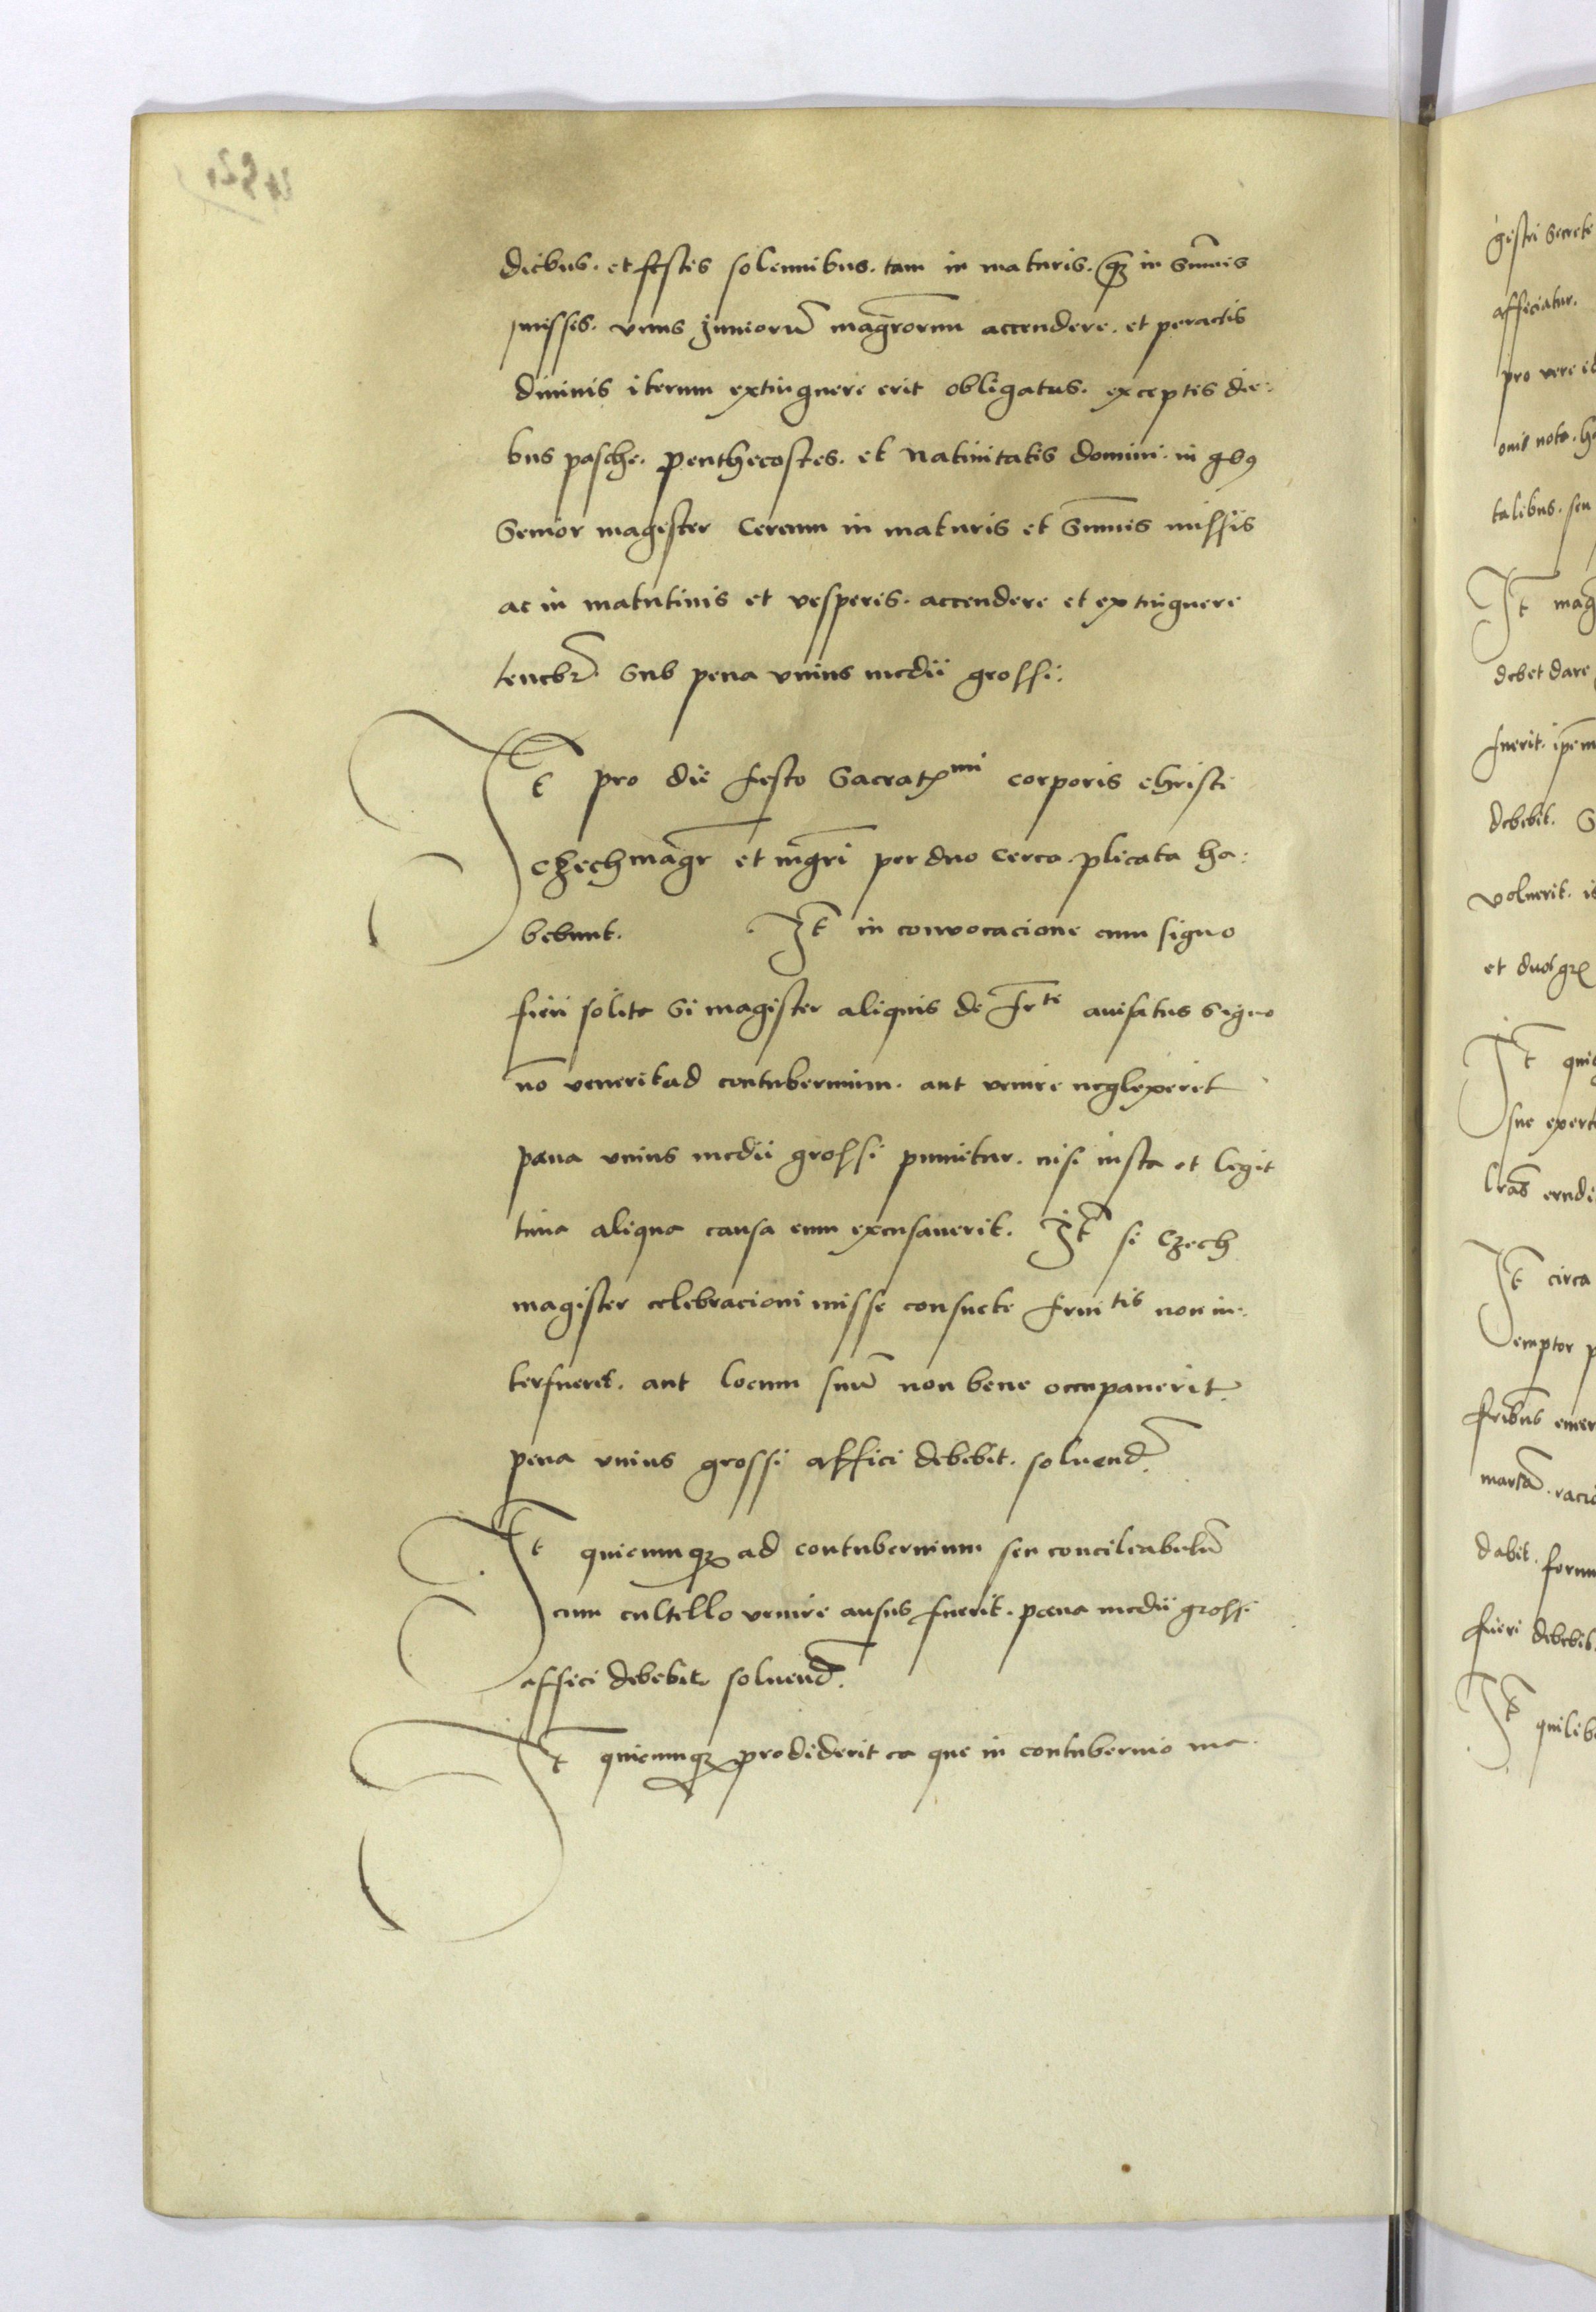 diebus. et festis solennibus. tam in maturis. q̃z in sũmis
missis. vnus Juniorũ magr̃orum accendere. et peractis
diuinis iterum extinguere erit obligatus. exceptis die:
bus pasche. Penthecostes. et Natiuitatis domini. in qb9
Senior magister Cereum in maturis et Sum̃is missis
ac in matutinis et vesperis. accendere et extinguere
tenebr̃. Sub pena vnius medii grossi:
Jt̃ pro die festo Sacratᵐⁱ corporis christi
Czechmagr̃ et mgr̃i per duo cerea. plicata ha:
bebunt. Jt̃ in convocacione cum signo
fieri solita Si magister aliquis de fr̃ᵗⁱ auisatus Signo
nõ venerit ad contubernium. aut venire neglexerit
pœna vnius medii grossi punitur. nisi iusta et legit
tima aliqua causa eum excusauerit. Jt̃ si Czech
magister celebracioni misse consuete frniᵗⁱˢ non in:
terfuerit. aut locum suũ non bene occupauerit.
pena vnius grossi affici debebit. soluend̃.
Jt̃ quicumqȝ ad contubernium seu conciliabulũ
cum cultello venire ausus fuerit. pœna medii grossi
affici debebit. soluend̃.
Jt̃ quicumqȝ prodiderit ea que in contubernio ma.
gistri Secrete
afficiatur.
talibus. seu
Jt̃ mag
debet dare
fuerit. ip̃em
debebit. S
voluerit. is
Jt̃ qui
lr̃as erudi
Jt̃ circa
emptor p
dabit.
fieri debebit.
Jt̃ quilib